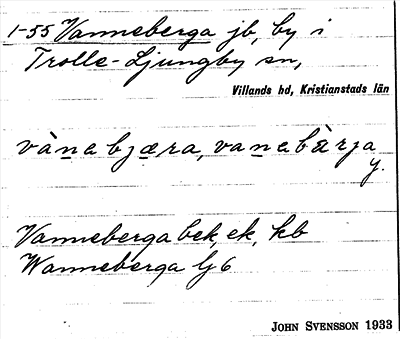 1-55 Vanneberga jb, by i
Trolle-Ljungby sn,
Villands hd, Kristianstads län
vànabjæra, vanabàrja
y.
Vanneberga bek, ek, kb
Wanneberga lj 6
JOHN SVENSSON 1933